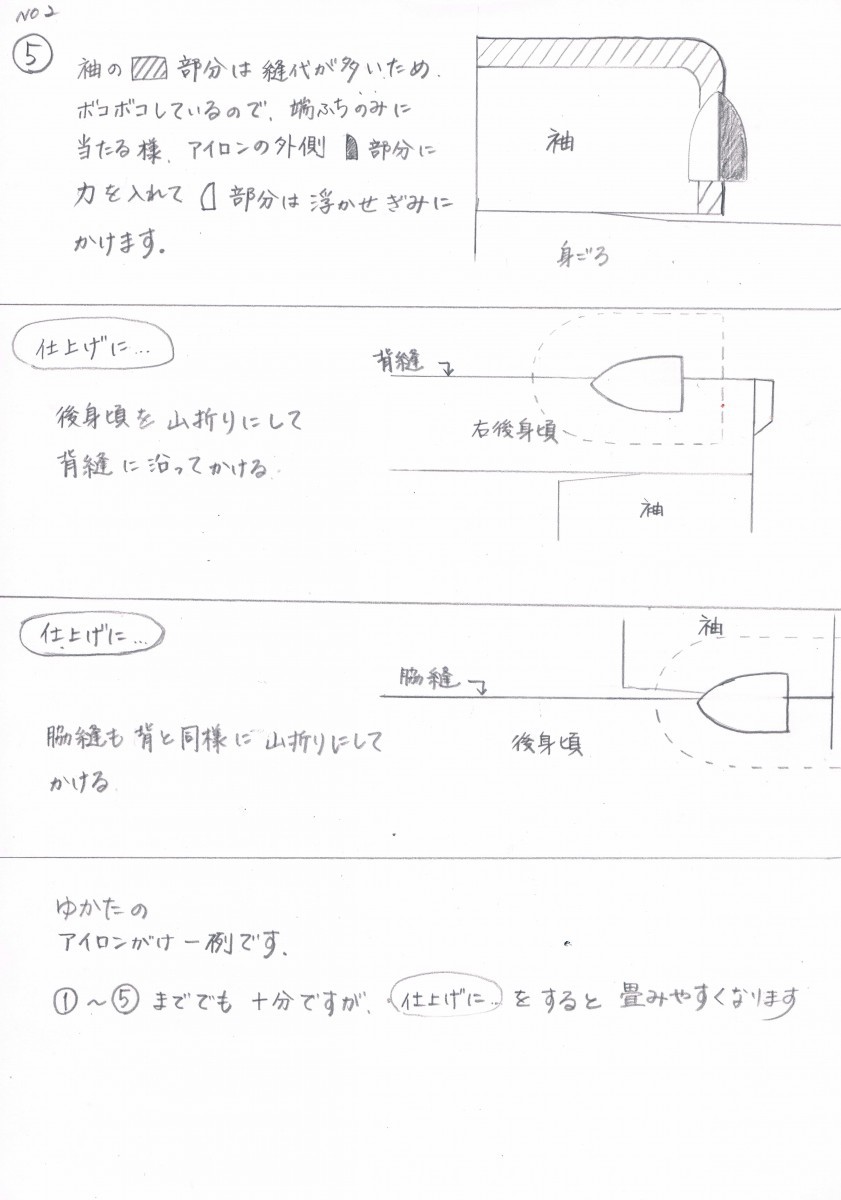 NO2
⑤
袖の 部分は縫代が多いため.
ボコボコしているので、端ふちのみに
当たる様、アイロンの外側 部分に
力を入れて 部分は浮かせぎみに
かけます。
袖
身ごろ
仕上げに…
後身頃を山折りにして
背縫に沿ってかける.
背縫
右後身頃
袖
仕上げに…
脇縫も背と同様に山折りにして
かける.
袖
脇縫
後身頃
ゆかたの
アイロンがけ一例です.
①~⑤までも十分ですが、仕上げに…をすると畳みやすくなります